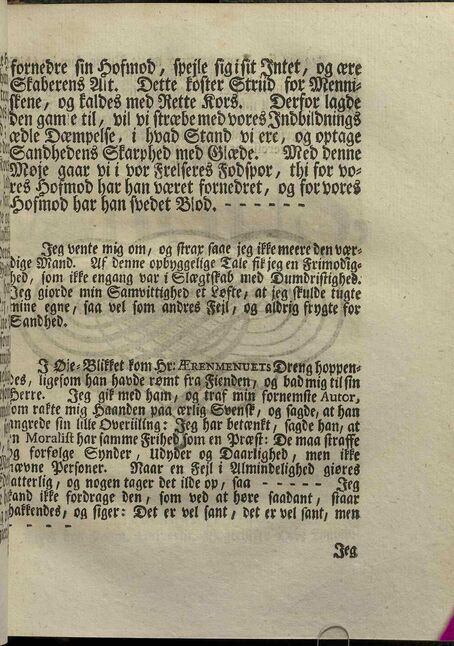 fornedre sin Hofmod, spejle sig i sit Intet, og ære
Skaberens Alt. Dette koster Striid for Menni-
skene, og kaldes med Rette Kors. Derfor lagde
den gamle til, vil vi stræbe med vores Indbildnings
ædle Dæmpelse, i hvad Stand vi ere, og optage
Sandhedens Skarphed med Glæde. Med denne
Moje gaar vi i vor Frelseres Fodspor, thi for vo-
res Hofmod har han været fornedret, og for vores
Hofmod har han svedet Blod. - - - - - -
Jeg vente mig om, og strax saae jeg ikke meere den vær-
dige Mand. Af denne opbyggelige Tale fik jeg en Frimodig-
hed, som ikke engang var i Slægtskab med Dumdristighed.
Jeg giorde min Samvittighed et Løfte, at jeg skulde tugte
mine egne, saa vel som andres Fejl, og aldrig frygte for
Sandhed.
I Øje-Blikket kom Hr: ÆRENMENUETS Dreng hoppen-
des, ligesom han havde rømt fra Fienden, og bad mig til sin
Herre. Jeg gik med ham, og traf min fornemste Autor,
som rakte mig Haanden paa ærlig Svensk, og sagde, at han
angrede sin lille Overiilling: Jeg har betænkt, sagde han, at
en Moralist har samme Frihed som en Præst: De maa straffe
og forfølge Synder, Udyder og Daarlighed, men ikke
nævne Personer. Naar en Fejl i Almindelighed giøres
latterlig, og nogen tager det ilde op, saa - - - - - Jeg
kand ikke fordrage den, som ved at høre saadant, staar
hakkendes, og siger: Det er vel sant, det er vel sant, men
- - - - -
Jeg